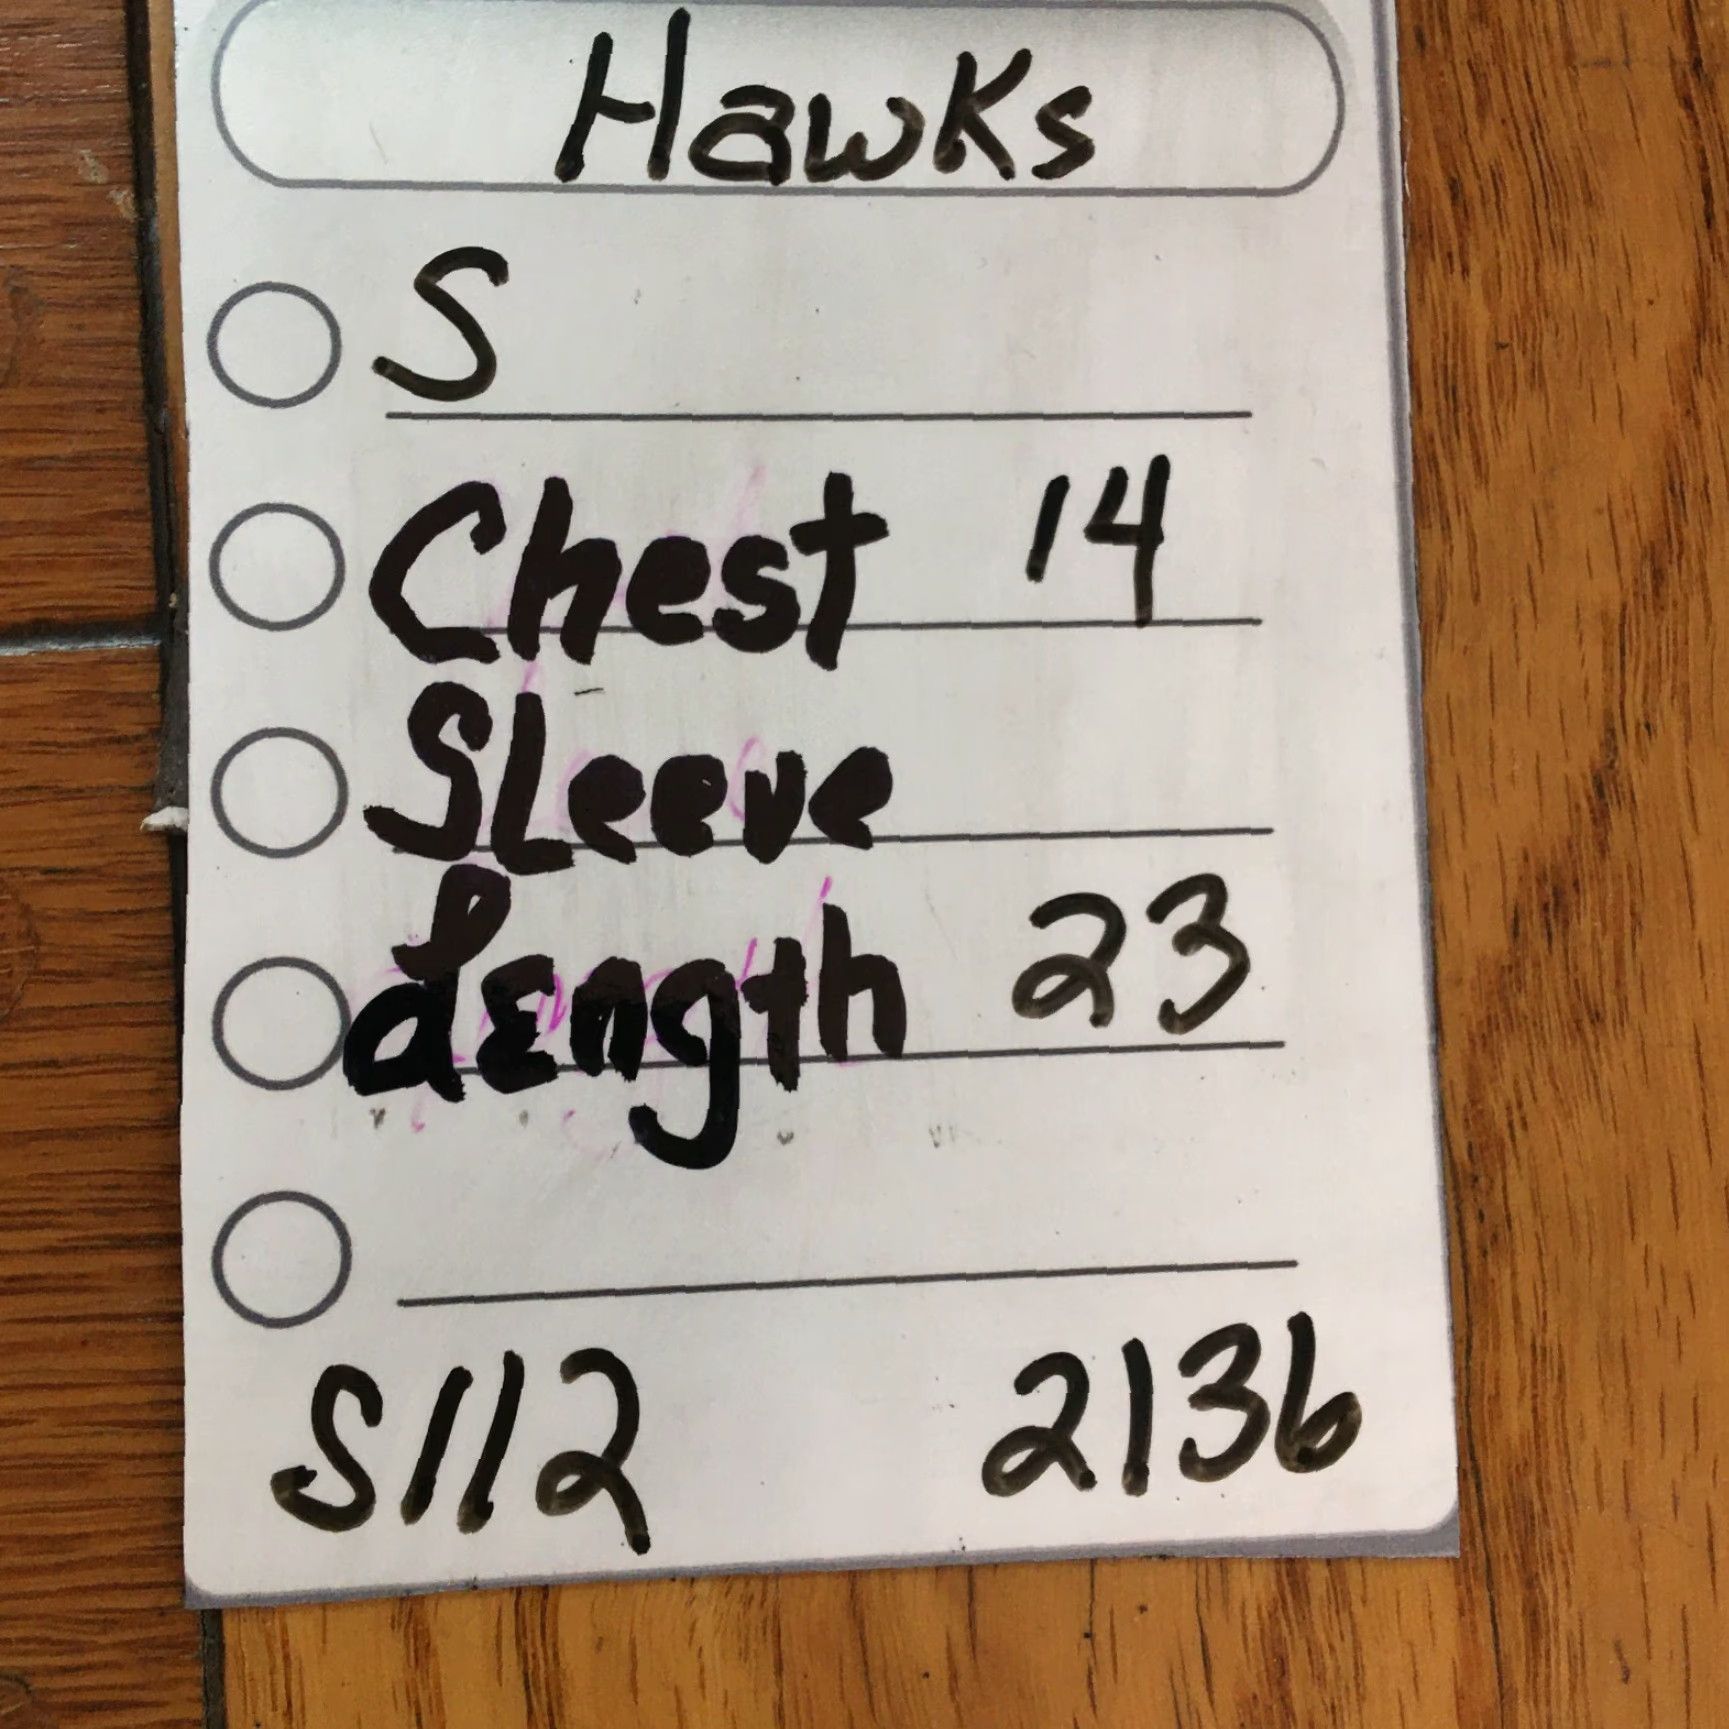 Hawks
S
Chest 14
SLeeve
Length 23
S112 2136